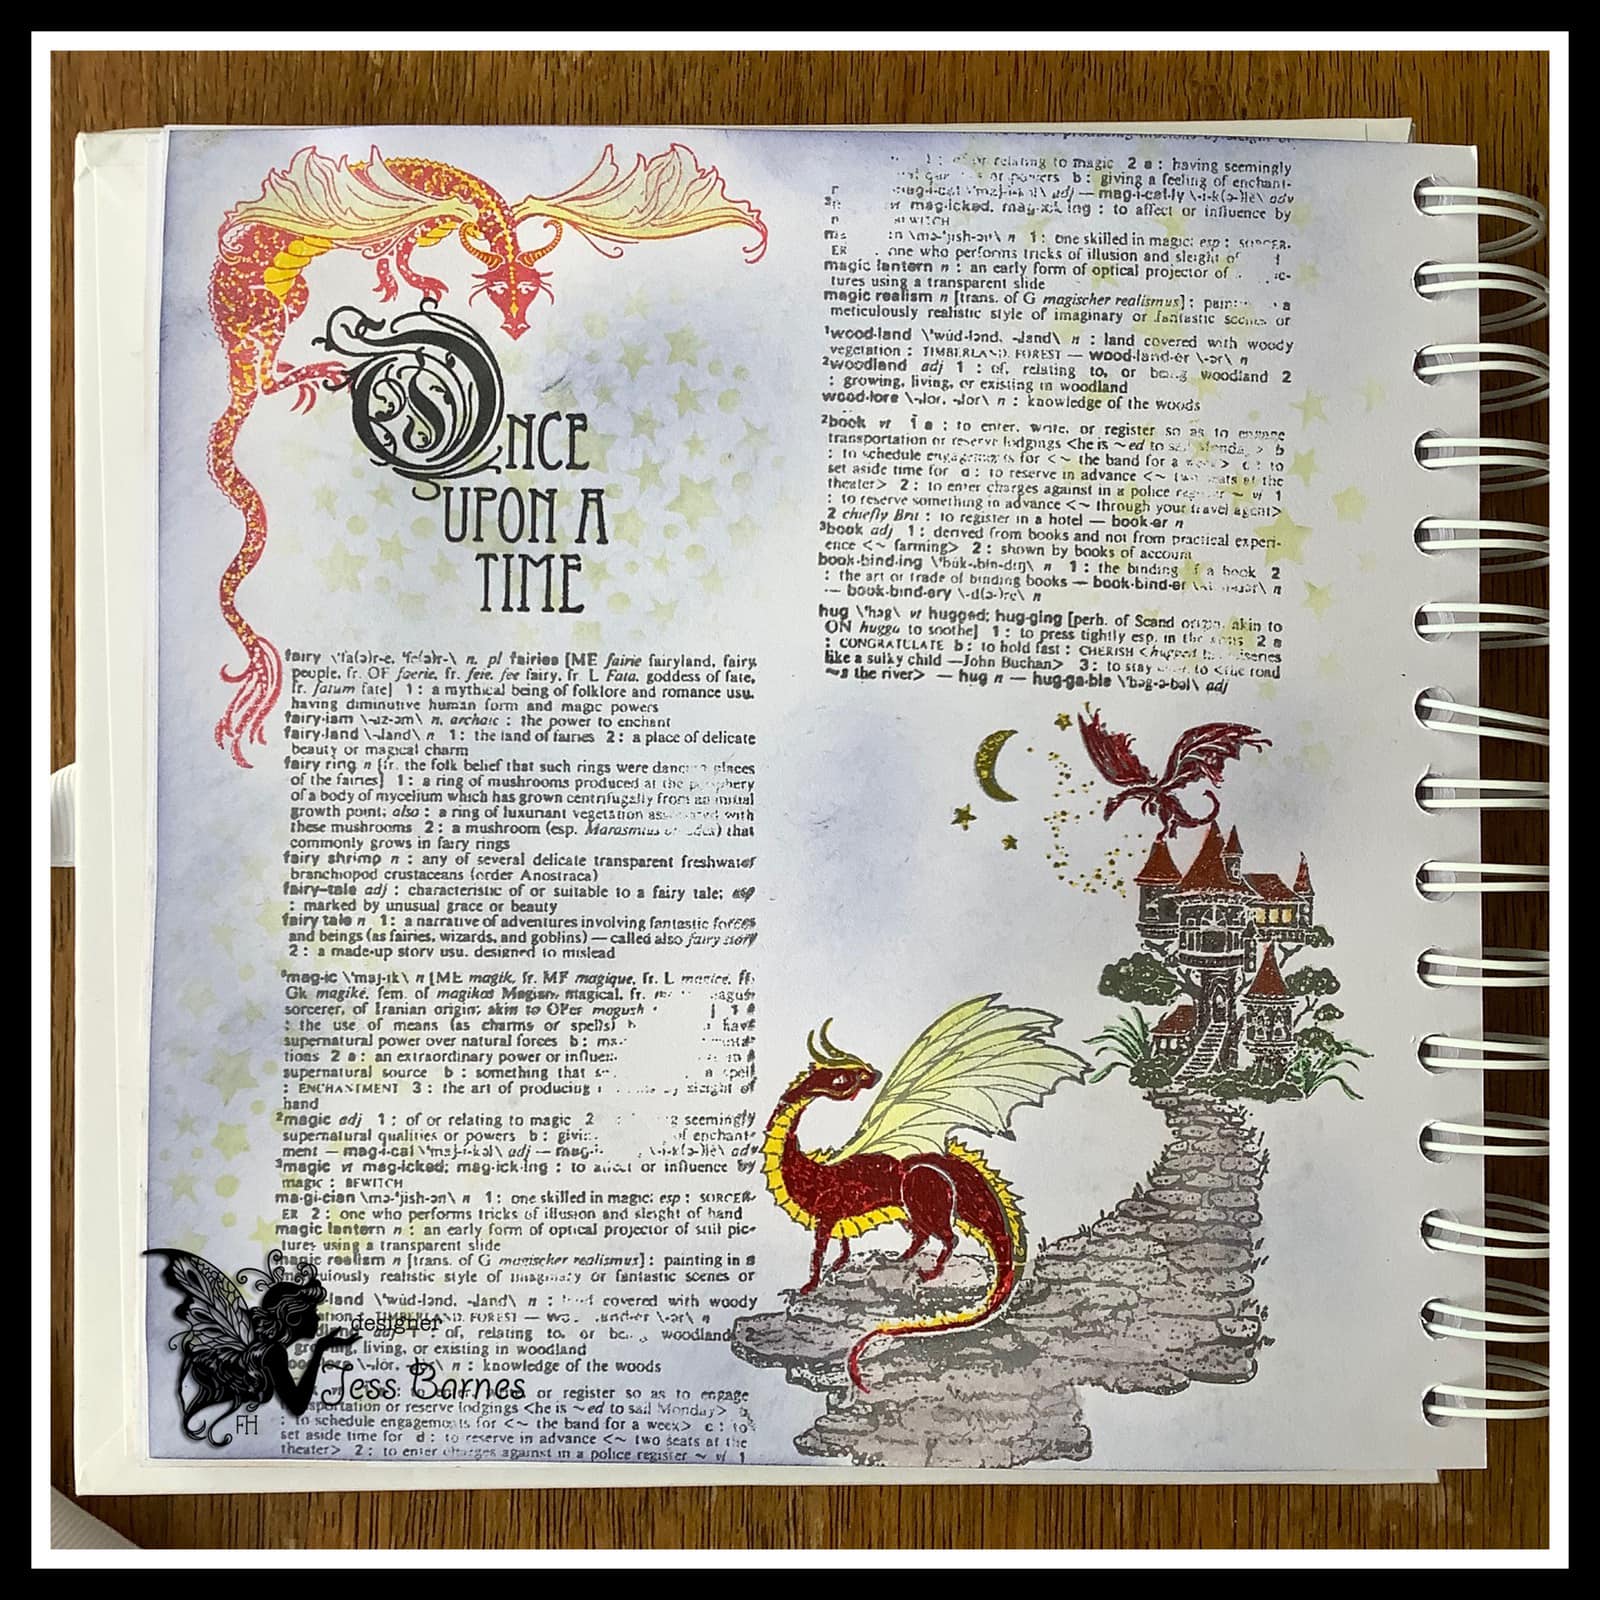 ONCE
UPON A
TIME
fairy \'fa(ə)r-e, 'fe(ə)r-\ n, pl fairies [ME fairie fairyland, fairy
people, fr. OF faerie, fr. feie, fee fairy, fr. L Fata, goddess of fate,
fr. fatum fate] 1 : a mythical being of folklore and romance usu.
having diminutive human form and magic powers
fairy·ism \-ˌiz-əm\ n, archaic : the power to enchant
fairy·land \-ˌland\ n 1 : the land of fairies 2 : a place of delicate
beauty or magical charm
fairy ring n [fr. the folk belief that such rings were places
of the fairies] 1 : a ring of mushrooms produced at the
of a body of mycelium which has grown centrifugally from an initial
growth point; also : a ring of luxuriant vegetation with
these mushrooms 2 : a mushroom (esp. Marasmius that
commonly grows in fairy rings
fairy shrimp n : any of several delicate transparent freshwater
branchiopod crustaceans (order Anostraca)
fairy-tale adj : characteristic of or suitable to a fairy tale; esp
: marked by unusual grace or beauty
fairy tale n 1 : a narrative of adventures involving fantastic forces
and beings (as fairies, wizards, and goblins) — called also fairy story
2 : a made-up story usu. designed to mislead
¹mag·ic \'maj-ik\ n [ME magik, fr. MF magique, fr. L magice, fr.
Gk magikē, fem. of magikos Magian, magical, fr.
sorcerer, of Iranian origin; akin to OPer magush 1 a
: the use of means (as charms or spells) have
supernatural power over natural forces b :
tions 2 a : an extraordinary power or
supernatural source b : something that a spell
: ENCHANTMENT 3 : the art of producing sleight of
hand
²magic adj 1 : of or relating to magic 2 seemingly
supernatural qualities or powers b : of enchant-
ment — mag·i·cal \'maj-i-kəl\ adj — adv
³magic vt mag·icked; mag·ick·ing : to affect or influence by
magic : BEWITCH
ma·gi·cian \mə-'jish-ən\ n 1 : one skilled in magic; esp : SORCER-
ER 2 : one who performs tricks of illusion and sleight of hand
magic lantern n : an early form of optical projector of still pic-
tures using a transparent slide
magic realism n [trans. of G magischer realismus] : painting in a
meticulously realistic style of imaginary or fantastic scenes or
\'wu̇d-lənd, -ˌland\ n : land covered with woody
FOREST —
of, relating to, or woodland 2
growing, living, or existing in woodland
\-ˌlōr, n : knowledge of the woods
or register so as to engage
transportation or reserve lodgings <he is ~ed to sail Monday> b
: to schedule engagements for <~ the band for a week> c : to
set aside time for d : to reserve in advance <~ two seats at the
theater> 2 : to enter charges against in a police register ~ vi 1
designer
Jess Barnes
FH
of or relating to magic 2 a : having seemingly
or powers b : giving a feeling of enchant-
mag·i·cal \'maj-i-kəl\ adj — mag·i·cal·ly \-i-k(ə-)lē\ adv
mag·icked; mag·ick·ing : to affect or influence by
BEWITCH
\mə-'jish-ən\ n 1 : one skilled in magic; esp : SORCER-
ER one who performs tricks of illusion and sleight of
magic lantern n : an early form of optical projector of
tures using a transparent slide
magic realism n [trans. of G magischer realismus] : a
meticulously realistic style of imaginary or fantastic scenes or
¹wood·land \'wu̇d-lənd, -ˌland\ n : land covered with woody
vegetation : TIMBERLAND, FOREST — wood·land·er \-ər\ n
²woodland adj 1 : of, relating to, or being woodland 2
: growing, living, or existing in woodland
wood·lore \-ˌlōr, -ˌlor\ n : knowledge of the woods
²book vt 1 a : to enter, write, or register so as to engage
transportation or reserve lodgings <he is ~ed to sail Monday> b
: to schedule engagements for <~ the band for a week> c : to
set aside time for d : to reserve in advance <~ two seats at the
theater> 2 : to enter charges against in a police register ~ vi 1
: to reserve something in advance <~ through your travel agent>
2 chiefly Brit : to register in a hotel — book·er n
³book adj 1 : derived from books and not from practical experi-
ence <~ farming> 2 : shown by books of account
book·bind·ing \'bu̇k-ˌbīn-diŋ\ n 1 : the binding of a book 2
: the art or trade of binding books — book·bind·er n
— book·bind·ery \-d(ə-)rē\ n
hug \'həg\ vt hugged; hug·ging [perh. of Scand origin, akin to
ON hugga to soothe] 1 : to press tightly esp. in the arms 2 a
: CONGRATULATE b : to hold fast : CHERISH <hugged his miseries
like a sulky child —John Buchan> 3 : to stay to <the road
~s the river> — hug n — hug·ga·ble \'həg-ə-bəl\ adj